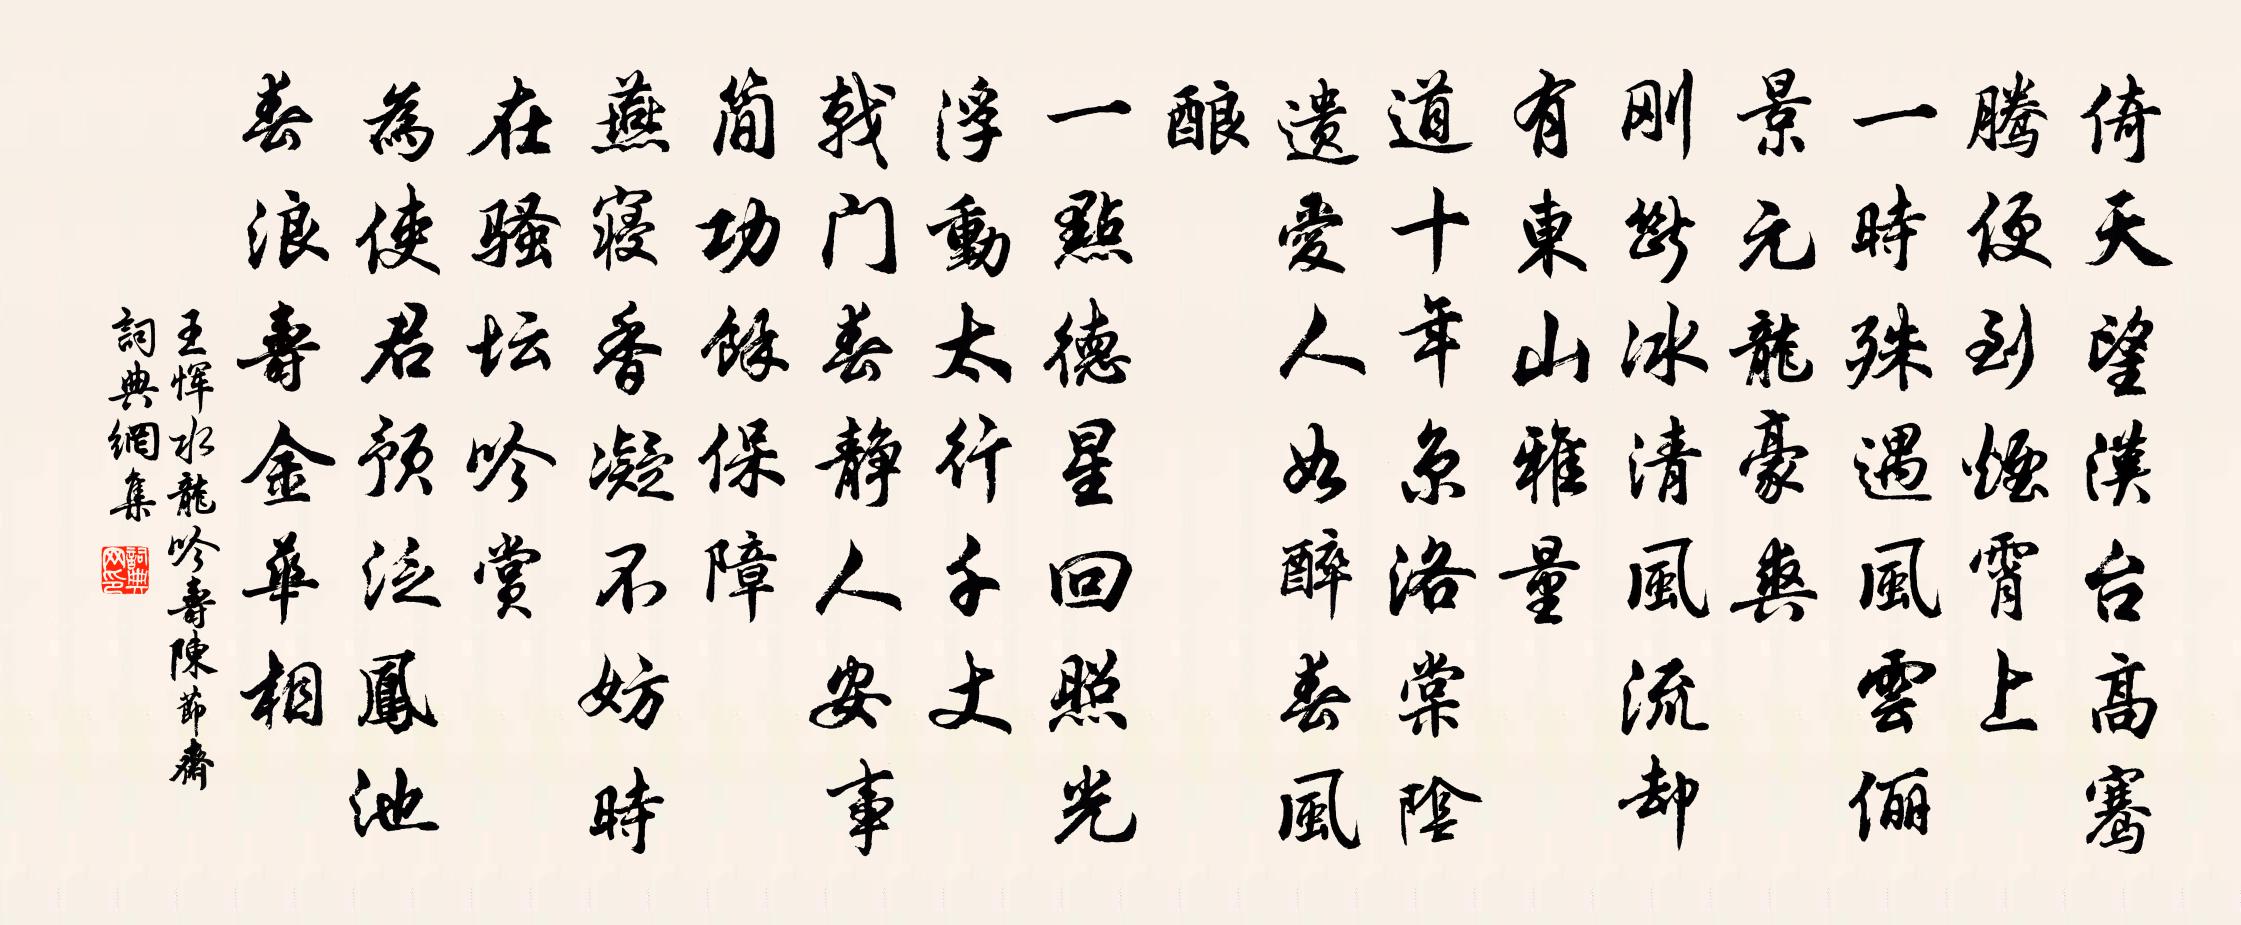 倚天望漢台高騫
騰便到煙霄上
一時殊遇風雲俪
景元龍豪爽
刚斷冰清風流却
有東山雅量
道十年京洛棠陰
遗愛人如醉春風
酿
一點德星回照光
浮動太行千丈
戟门春静人安事
简功餘保障
燕寝香凝不妨時
在骚坛吟赏
為使君预泛鳳池
春浪壽金華相
王恽水龍吟壽陳節齋
詞典網集
詞典网印